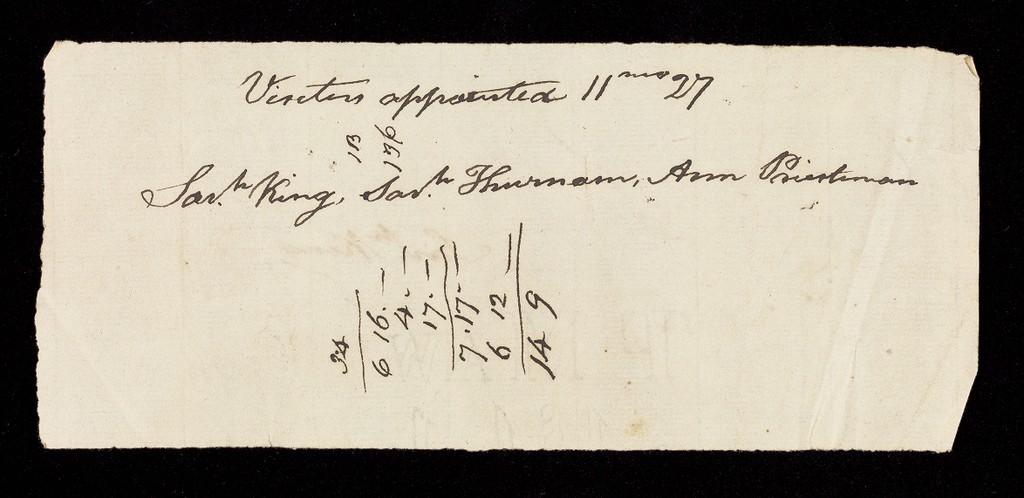 Visiters appointed 11 mo 27
Sarh King, Sarh Thurnam, Ann Priestman
1B
136
34
6 16. —
4. —
17. —
7. 17. —
6 12 —
14 9